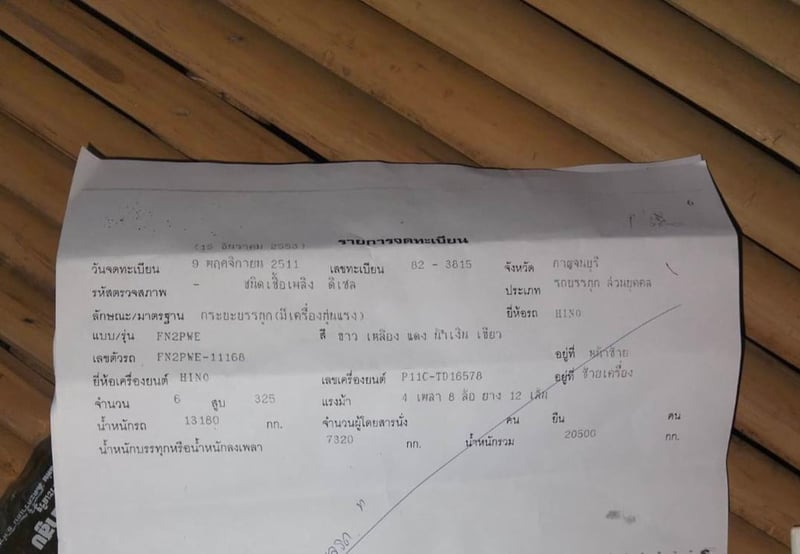 6
(15 ธันวาคม 2553) รายการจดทะเบียน
วันจดทะเบียน 9 พฤศจิกายน 2511 เลขทะเบียน 82 - 3815 จังหวัด กาญจนบุรี
รหัสตรวจสภาพ - ชนิดเชื้อเพลิง ดีเซล ประเภท รถบรรทุก ส่วนบุคคล
ลักษณะ/มาตรฐาน กระบะบรรทุก(มีเครื่องทุ่นแรง) ยี่ห้อรถ HINO
แบบ/รุ่น FN2PWE สี ขาว เหลือง แดง น้ำเงิน เขียว
เลขตัวรถ FN2PWE-11168 อยู่ที่ หน้าซ้าย
ยี่ห้อเครื่องยนต์ HINO เลขเครื่องยนต์ P11C-TD16578 อยู่ที่ ซ้ายเครื่อง
จำนวน 6 สูบ 325 แรงม้า 4 เพลา 8 ล้อ ยาง 12 เส้น
น้ำหนักรถ 13180 กก. จำนวนผู้โดยสารนั่ง คน ยืน คน
น้ำหนักบรรทุกหรือน้ำหนักลงเพลา 7320 กก. น้ำหนักรวม 20500 กก.